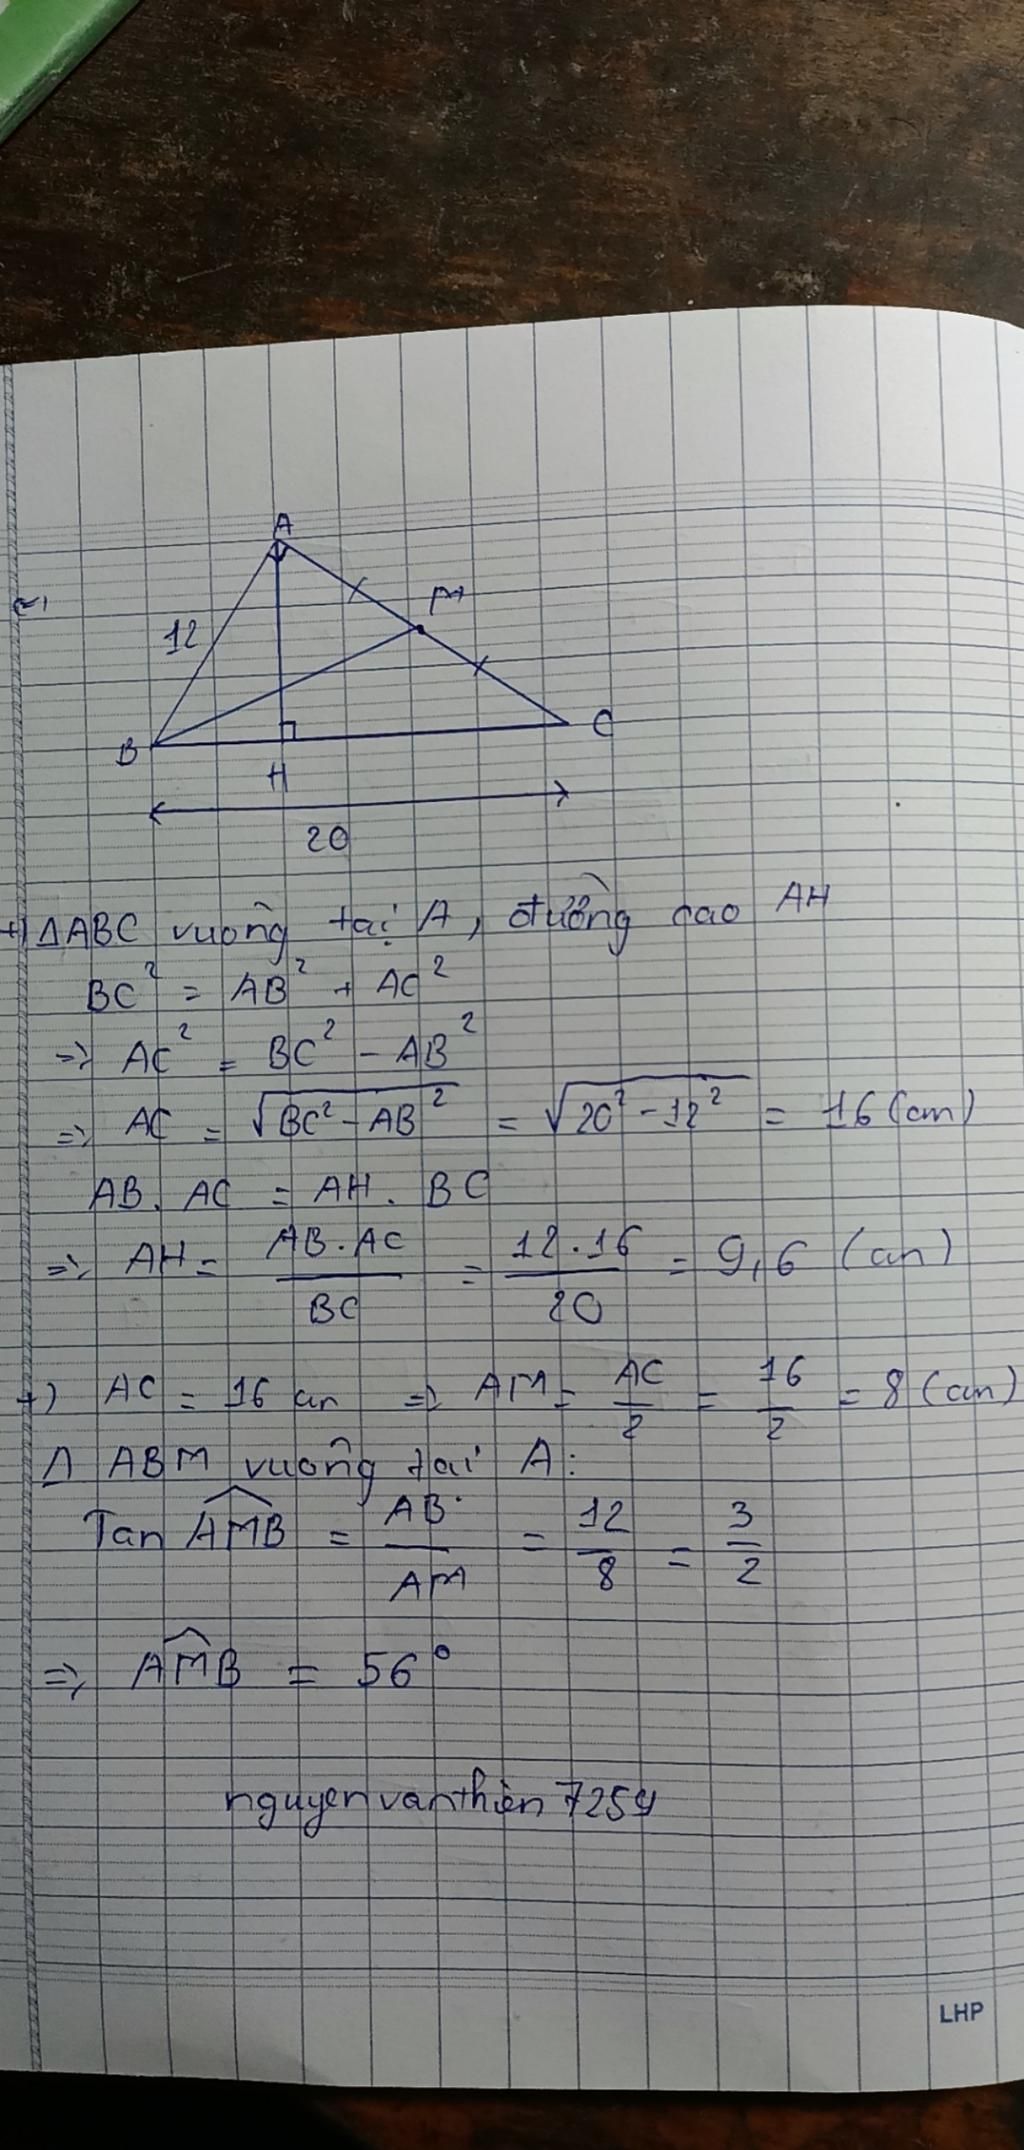 A
M
12
B
C
H
20
+) ΔABC vuông tại A, đường cao AH
BC² = AB² + AC²
=> AC² = BC² - AB²
=> AC = √(BC² - AB²) = √(20² - 12²) = 16 (cm)
AB. AC = AH. BC
=> AH = AB.AC/BC = 12.16/20 = 9,6 (cm)
+) AC = 16 cm => AM = AC/2 = 16/2 = 8 (cm)
Δ ABM vuông tại A:
Tan AMB^ = AB/AM = 12/8 = 3/2
=> AMB^ = 56°
nguyenvanthien7259
LHP